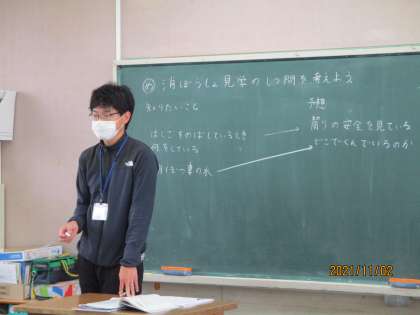 め 消ぼうしょ見学のしつ問を考えよう
知りたいこと
予想
はしごをのばしているとき
何をしている
周りの安全を見ている
ぼう車の水
どこでくんでいるのか
2021/11/02